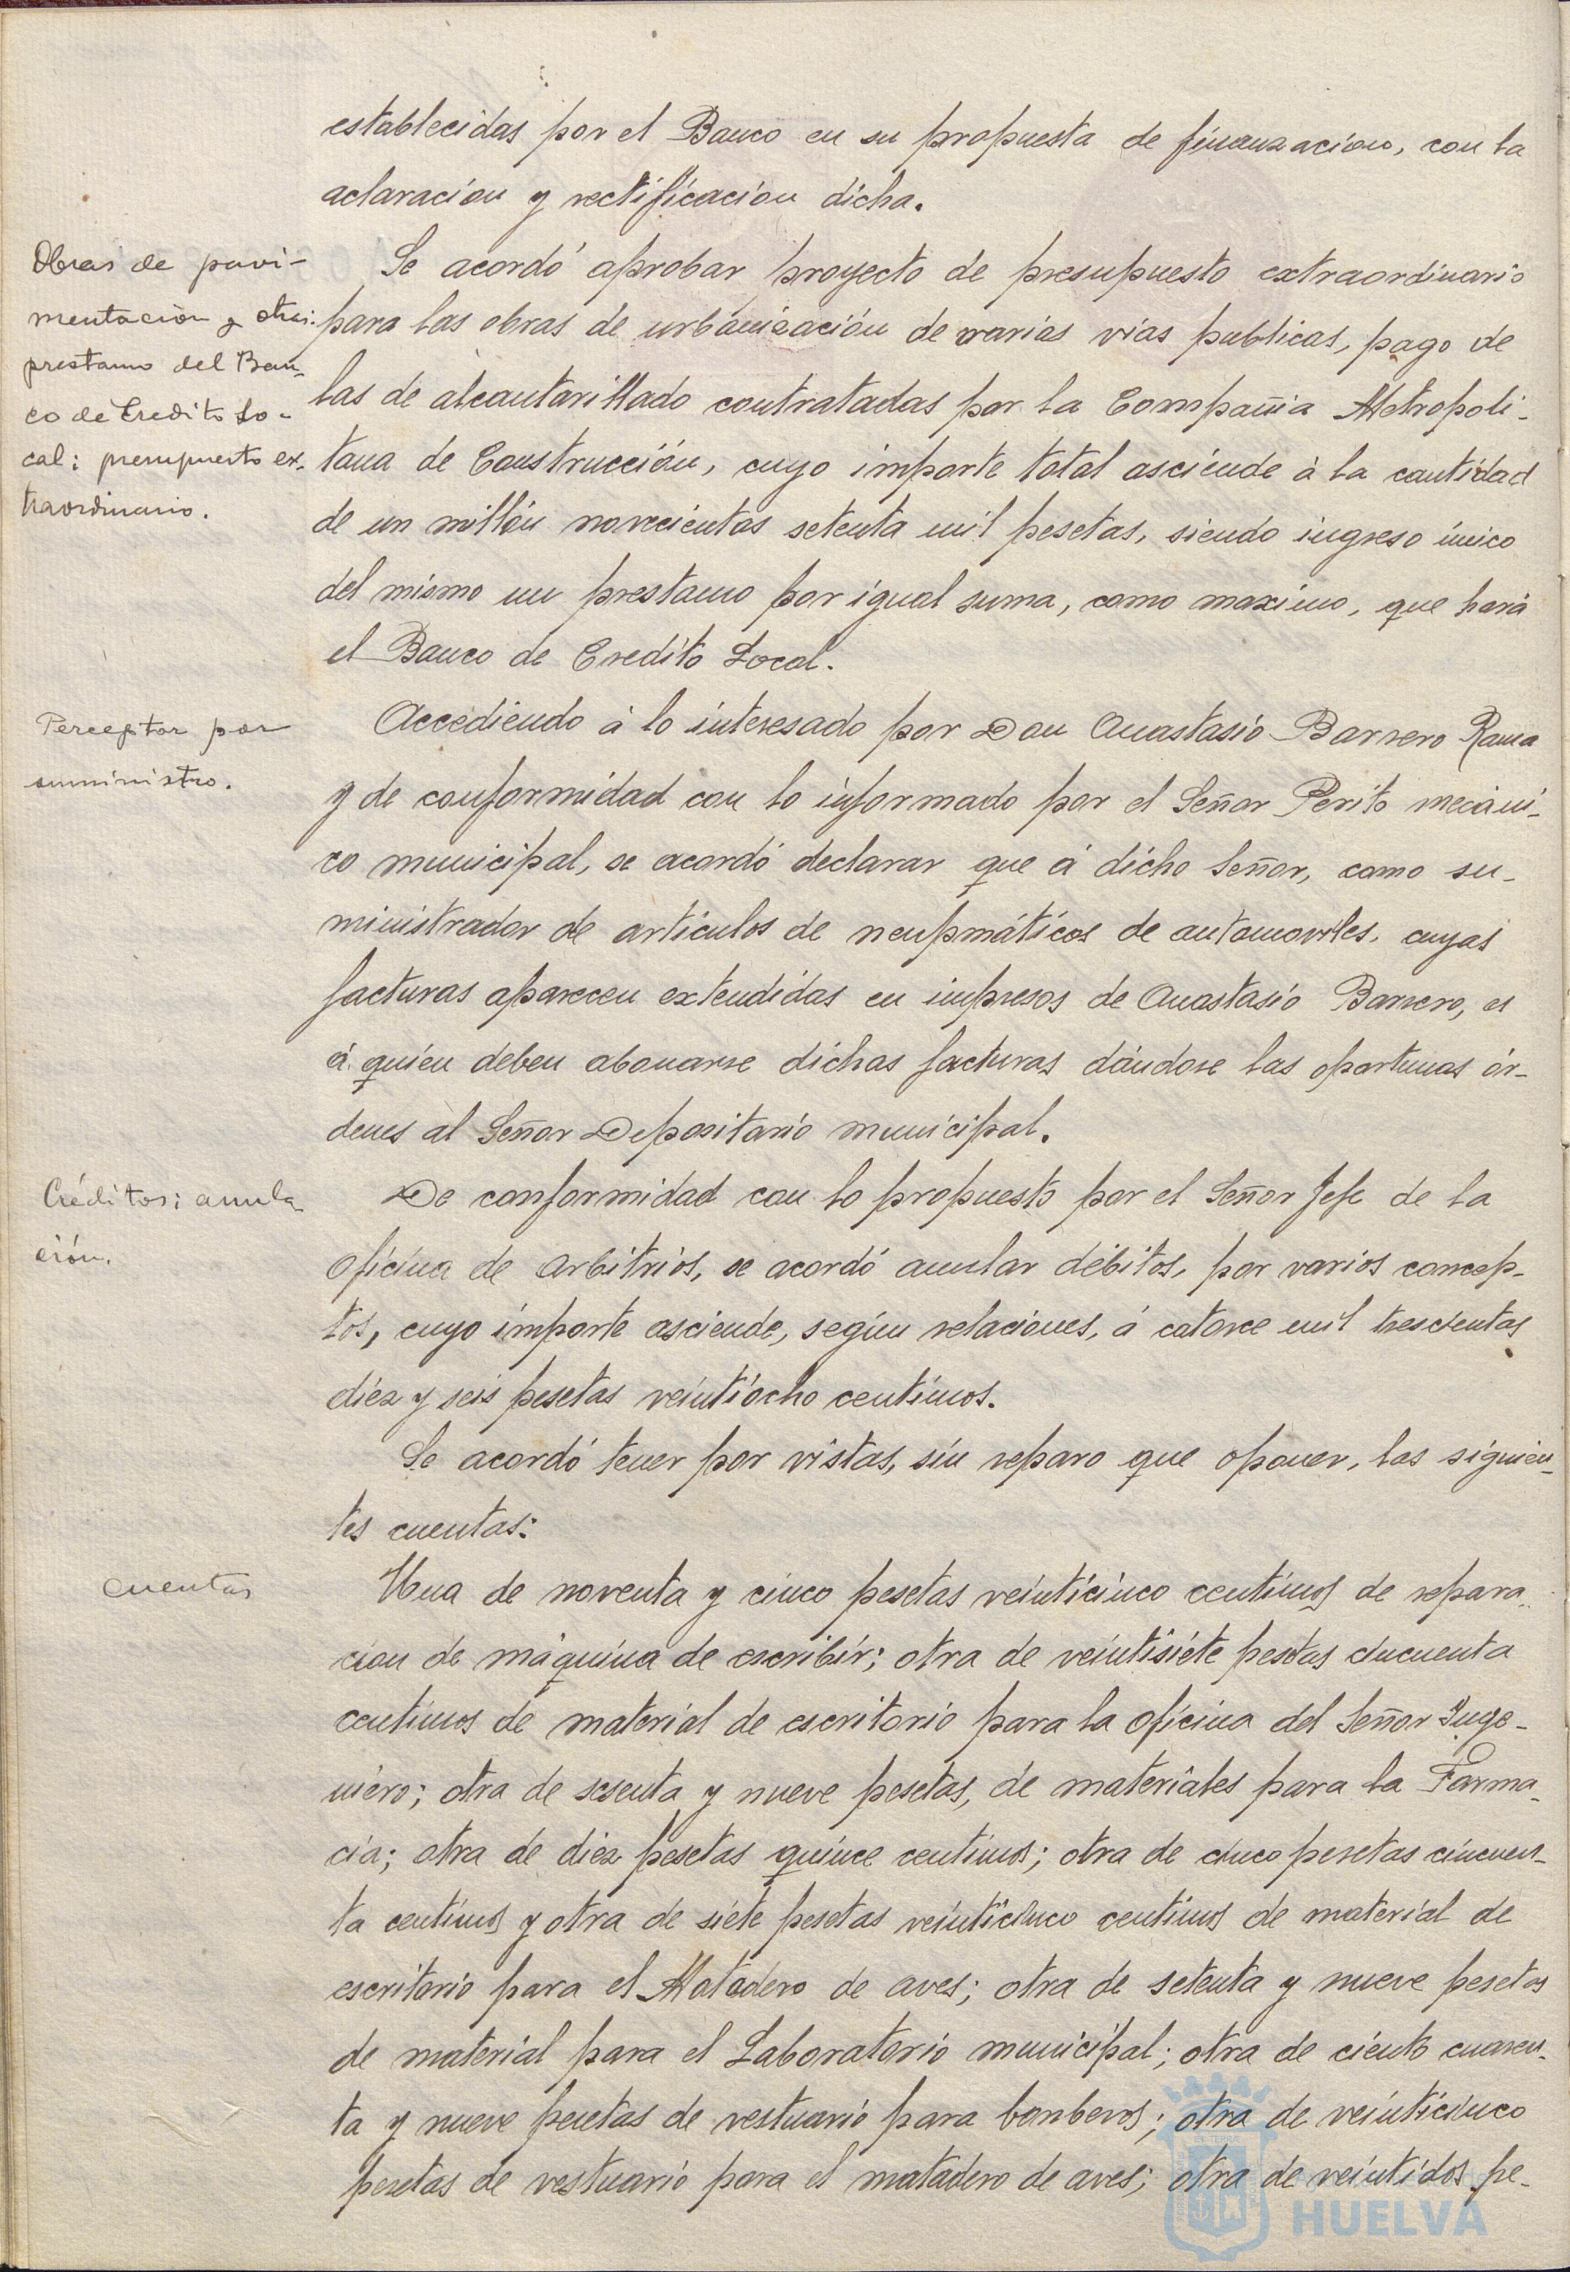 establecidas por el Banco en su propuesta de finanzacion, con la
aclaracion y rectificacion dicha.
Obras de pavi-
mentación y otras:
prestamo del Ban-
co de Credito Lo-
cal: presupuesto ex-
traordinario.
Se acordó aprobar proyecto de presupuesto extraordinario
para las obras de urbanización de varias vias publicas, pago de
las de alcantarillado contratadas por la Compañia Metropoli-
tana de Construcción, cuyo importe total asciende à la cantidad
de un millón novecientas setenta mil pesetas, siendo ingreso único
del mismo un prestamo por igual suma, como maximo, que hará
el Banco de Credito Local.
Perceptor por
suministro.
Accediendo à lo interesado por Don Anastasio Barrero Rama
y de conformidad con lo informado por el Señor Perito mecáni-
co municipal, se acordó declarar que á dicho Señor, como su-
ministrador de artículos de neupmáticos de automoviles, cuyas
facturas aparecen extendidas en impresos de Anastasio Barrero, es
á quien deben abonarse dichas facturas dándose las oportunas ór-
denes al Señor Depositario municipal.
Créditos; anula-
ción.
De conformidad con lo propuesto por el Señor Jefe de la
oficina de arbitrios, se acordó anular débitos, por varios concep-
tos, cuyo importe asciende, según relaciones, á catorce mil trescientas
diez y seis pesetas veintiocho centimos.
Se acordó tener por vistas, sin reparo que oponer, las siguien-
tes cuentas:
cuentas
Una de noventa y cinco pesetas veinticinco centimos de repara-
cion de máquina de escribir; otra de veintisiete pesetas cincuenta
centimos de material de escritorio para la oficina del Señor Inge-
niero; otra de sesenta y nueve pesetas, de materiales para la Farma-
cia; otra de diez pesetas quince centimos; otra de cinco pesetas cincuen-
ta centimos y otra de siete pesetas veinticinco centimos de material de
escritorio para el Matadero de aves; otra de setenta y nueve pesetas
de material para el Laboratorio municipal; otra de ciento cuaren-
ta y nueve pesetas de vestuario para bomberos; otra de veinticinco
pesetas de vestuario para el matadero de aves; otra de veintidos pe-
HUELVA